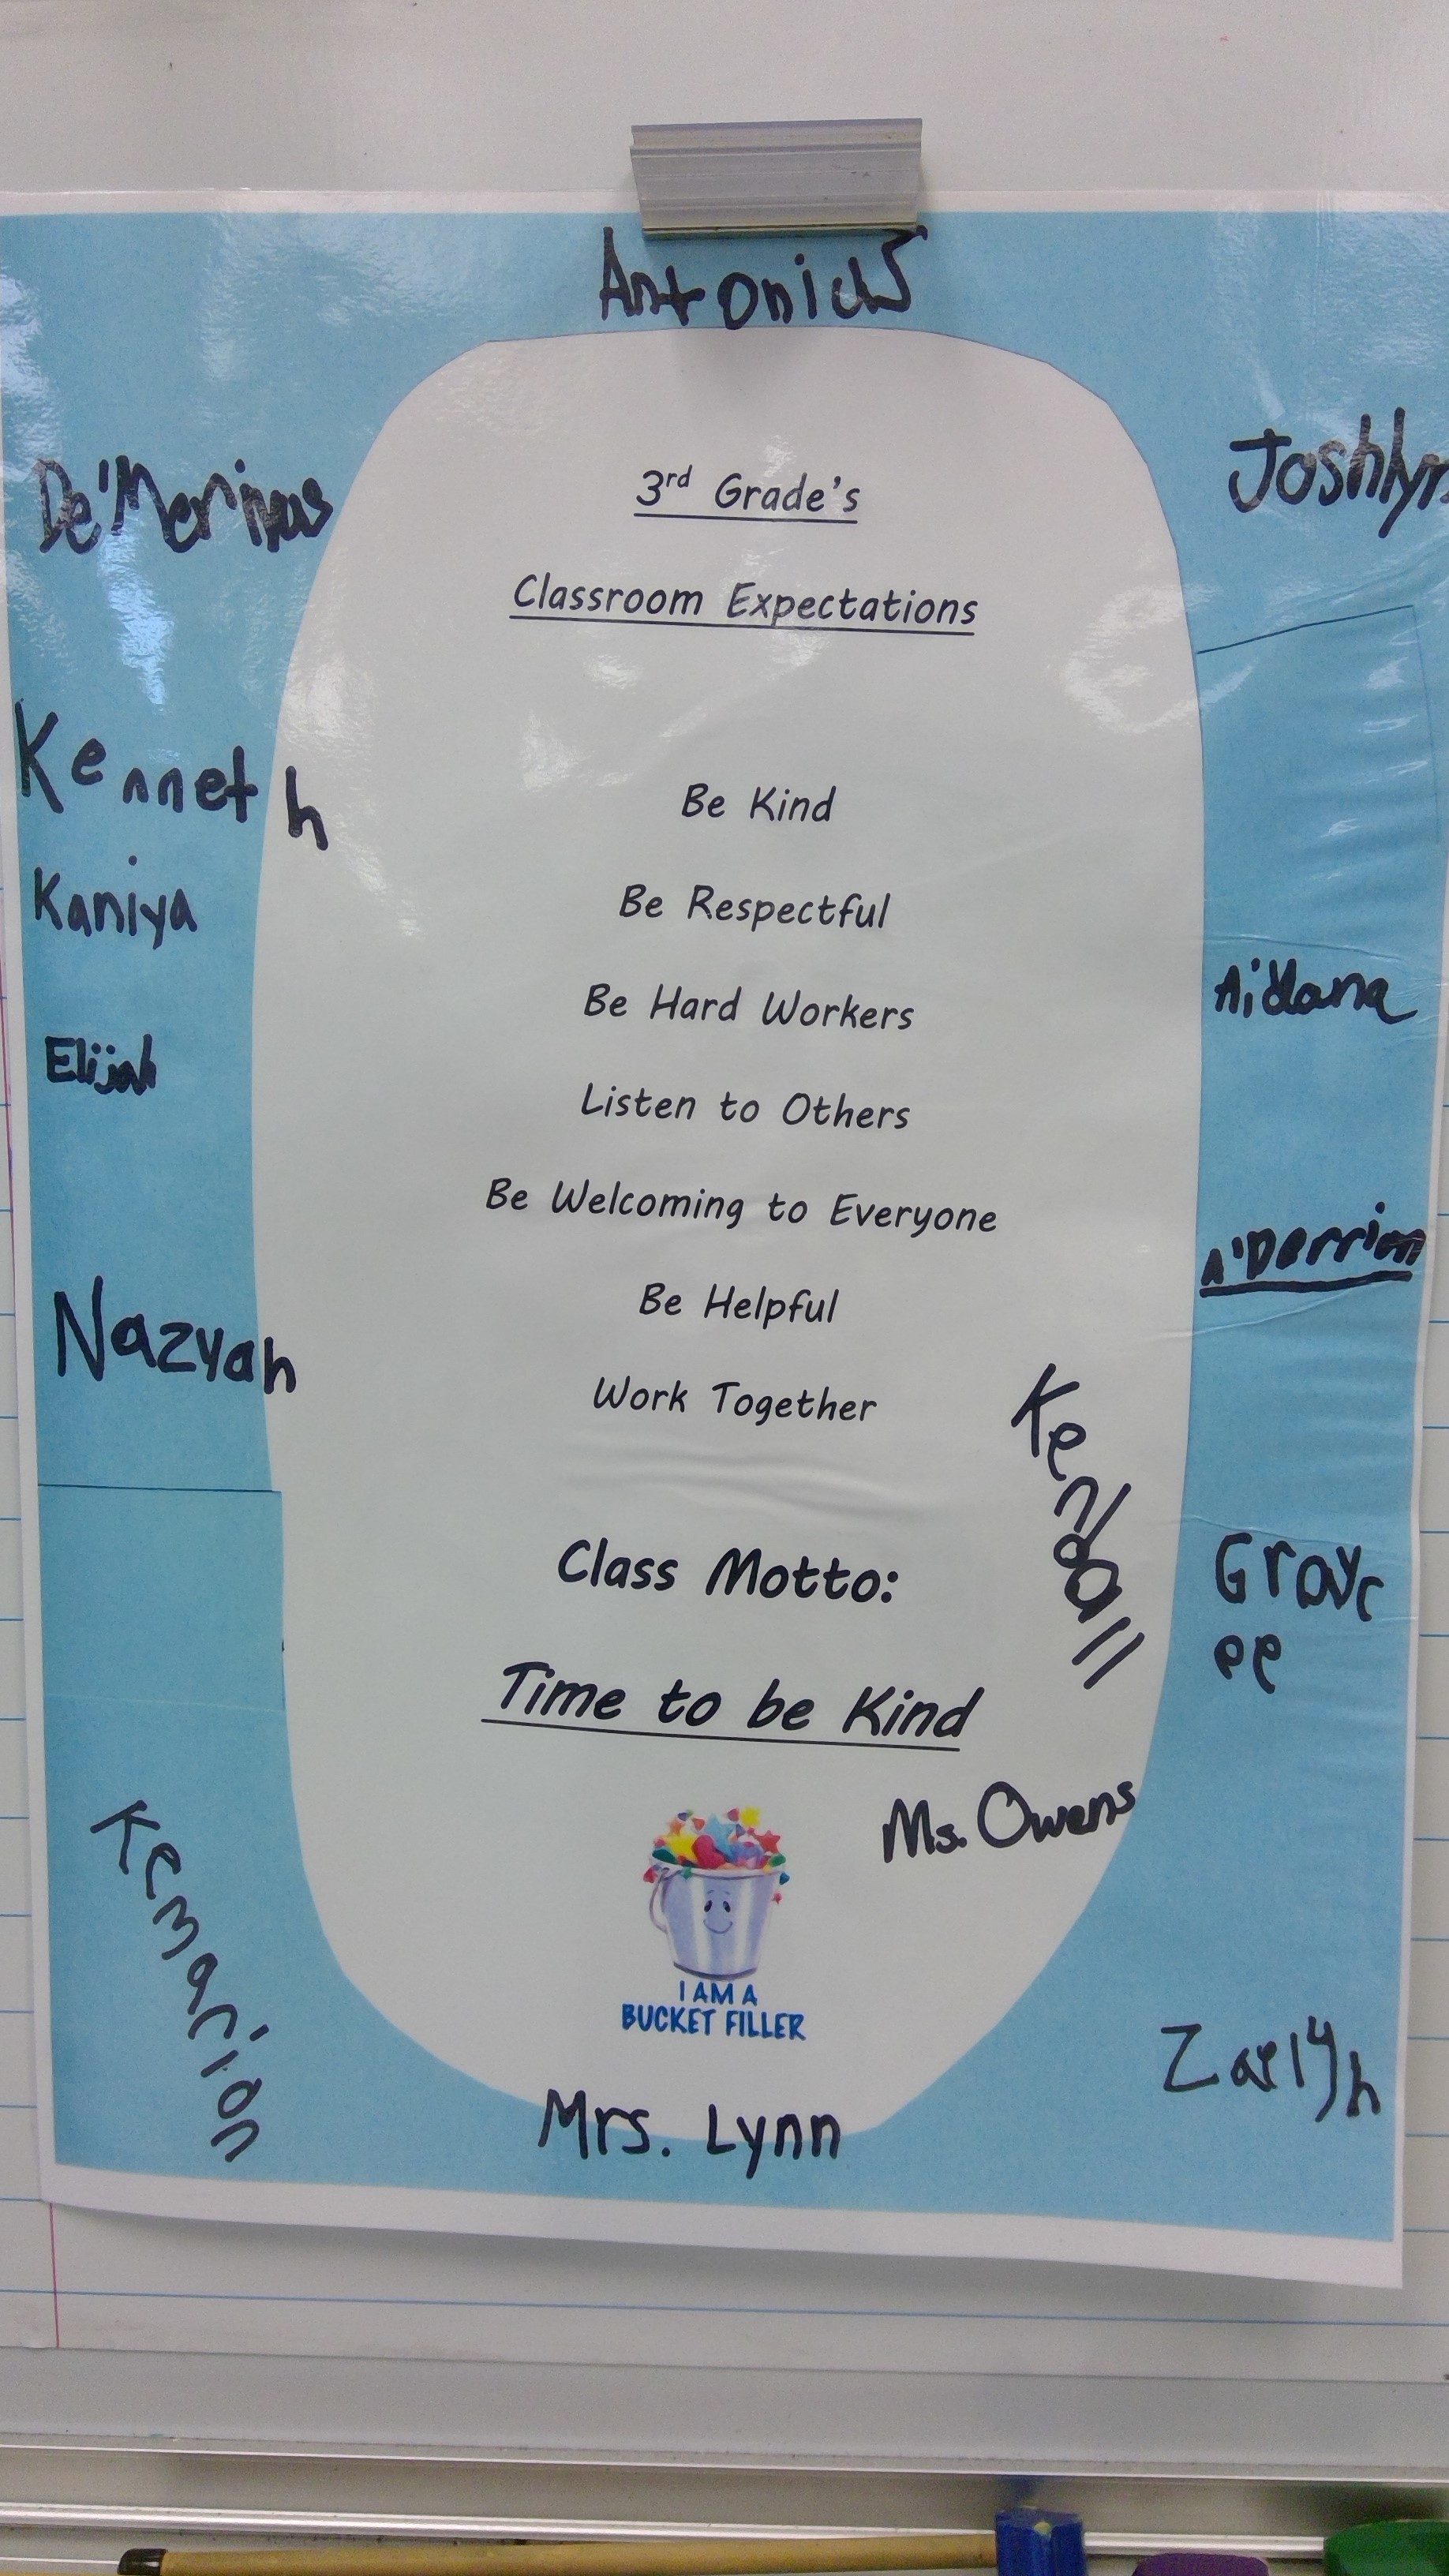 Antonius
De'Merivus
Joshlyn
3rd Grade's
Classroom Expectations
Kenneth
Be Kind
Kaniya
Be Respectful
Be Hard Workers
Aidana
Elijah
Listen to Others
Be Welcoming to Everyone
A'Derrion
Be Helpful
Nazyah
Work Together
Kendall
Class Motto:
Grayc
ee
Time to be Kind
Ms. Owens
Kemarion
I AM A
BUCKET FILLER
Mrs. Lynn